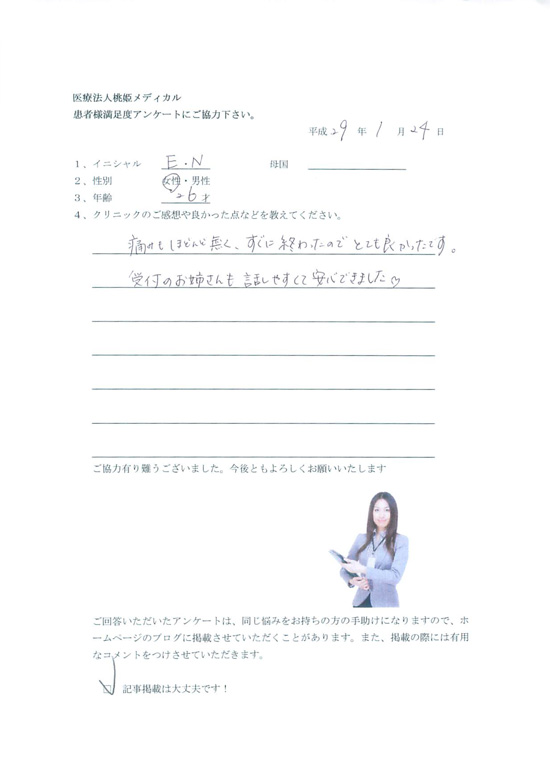 医療法人桃姫メディカル
患者様満足度アンケートにご協力下さい。
平成 29 年 1 月 24 日
1、イニシャル E・N 母国
2、性別 女性・男性
3、年齢 26才
4、クリニックのご感想や良かった点などを教えてください。
痛みもほとんど無く、すぐに終わったのでとても良かったです。
受付のお姉さんも話しやすくて安心できました♡
ご協力有り難うございました。今後ともよろしくお願いいたします
ご回答いただいたアンケートは、同じ悩みをお持ちの方の手助けになりますので、ホ
ームページのブログに掲載させていただくことがあります。また、掲載の際には有用
なコメントをつけさせていただきます。
☑ 記事掲載は大丈夫です！